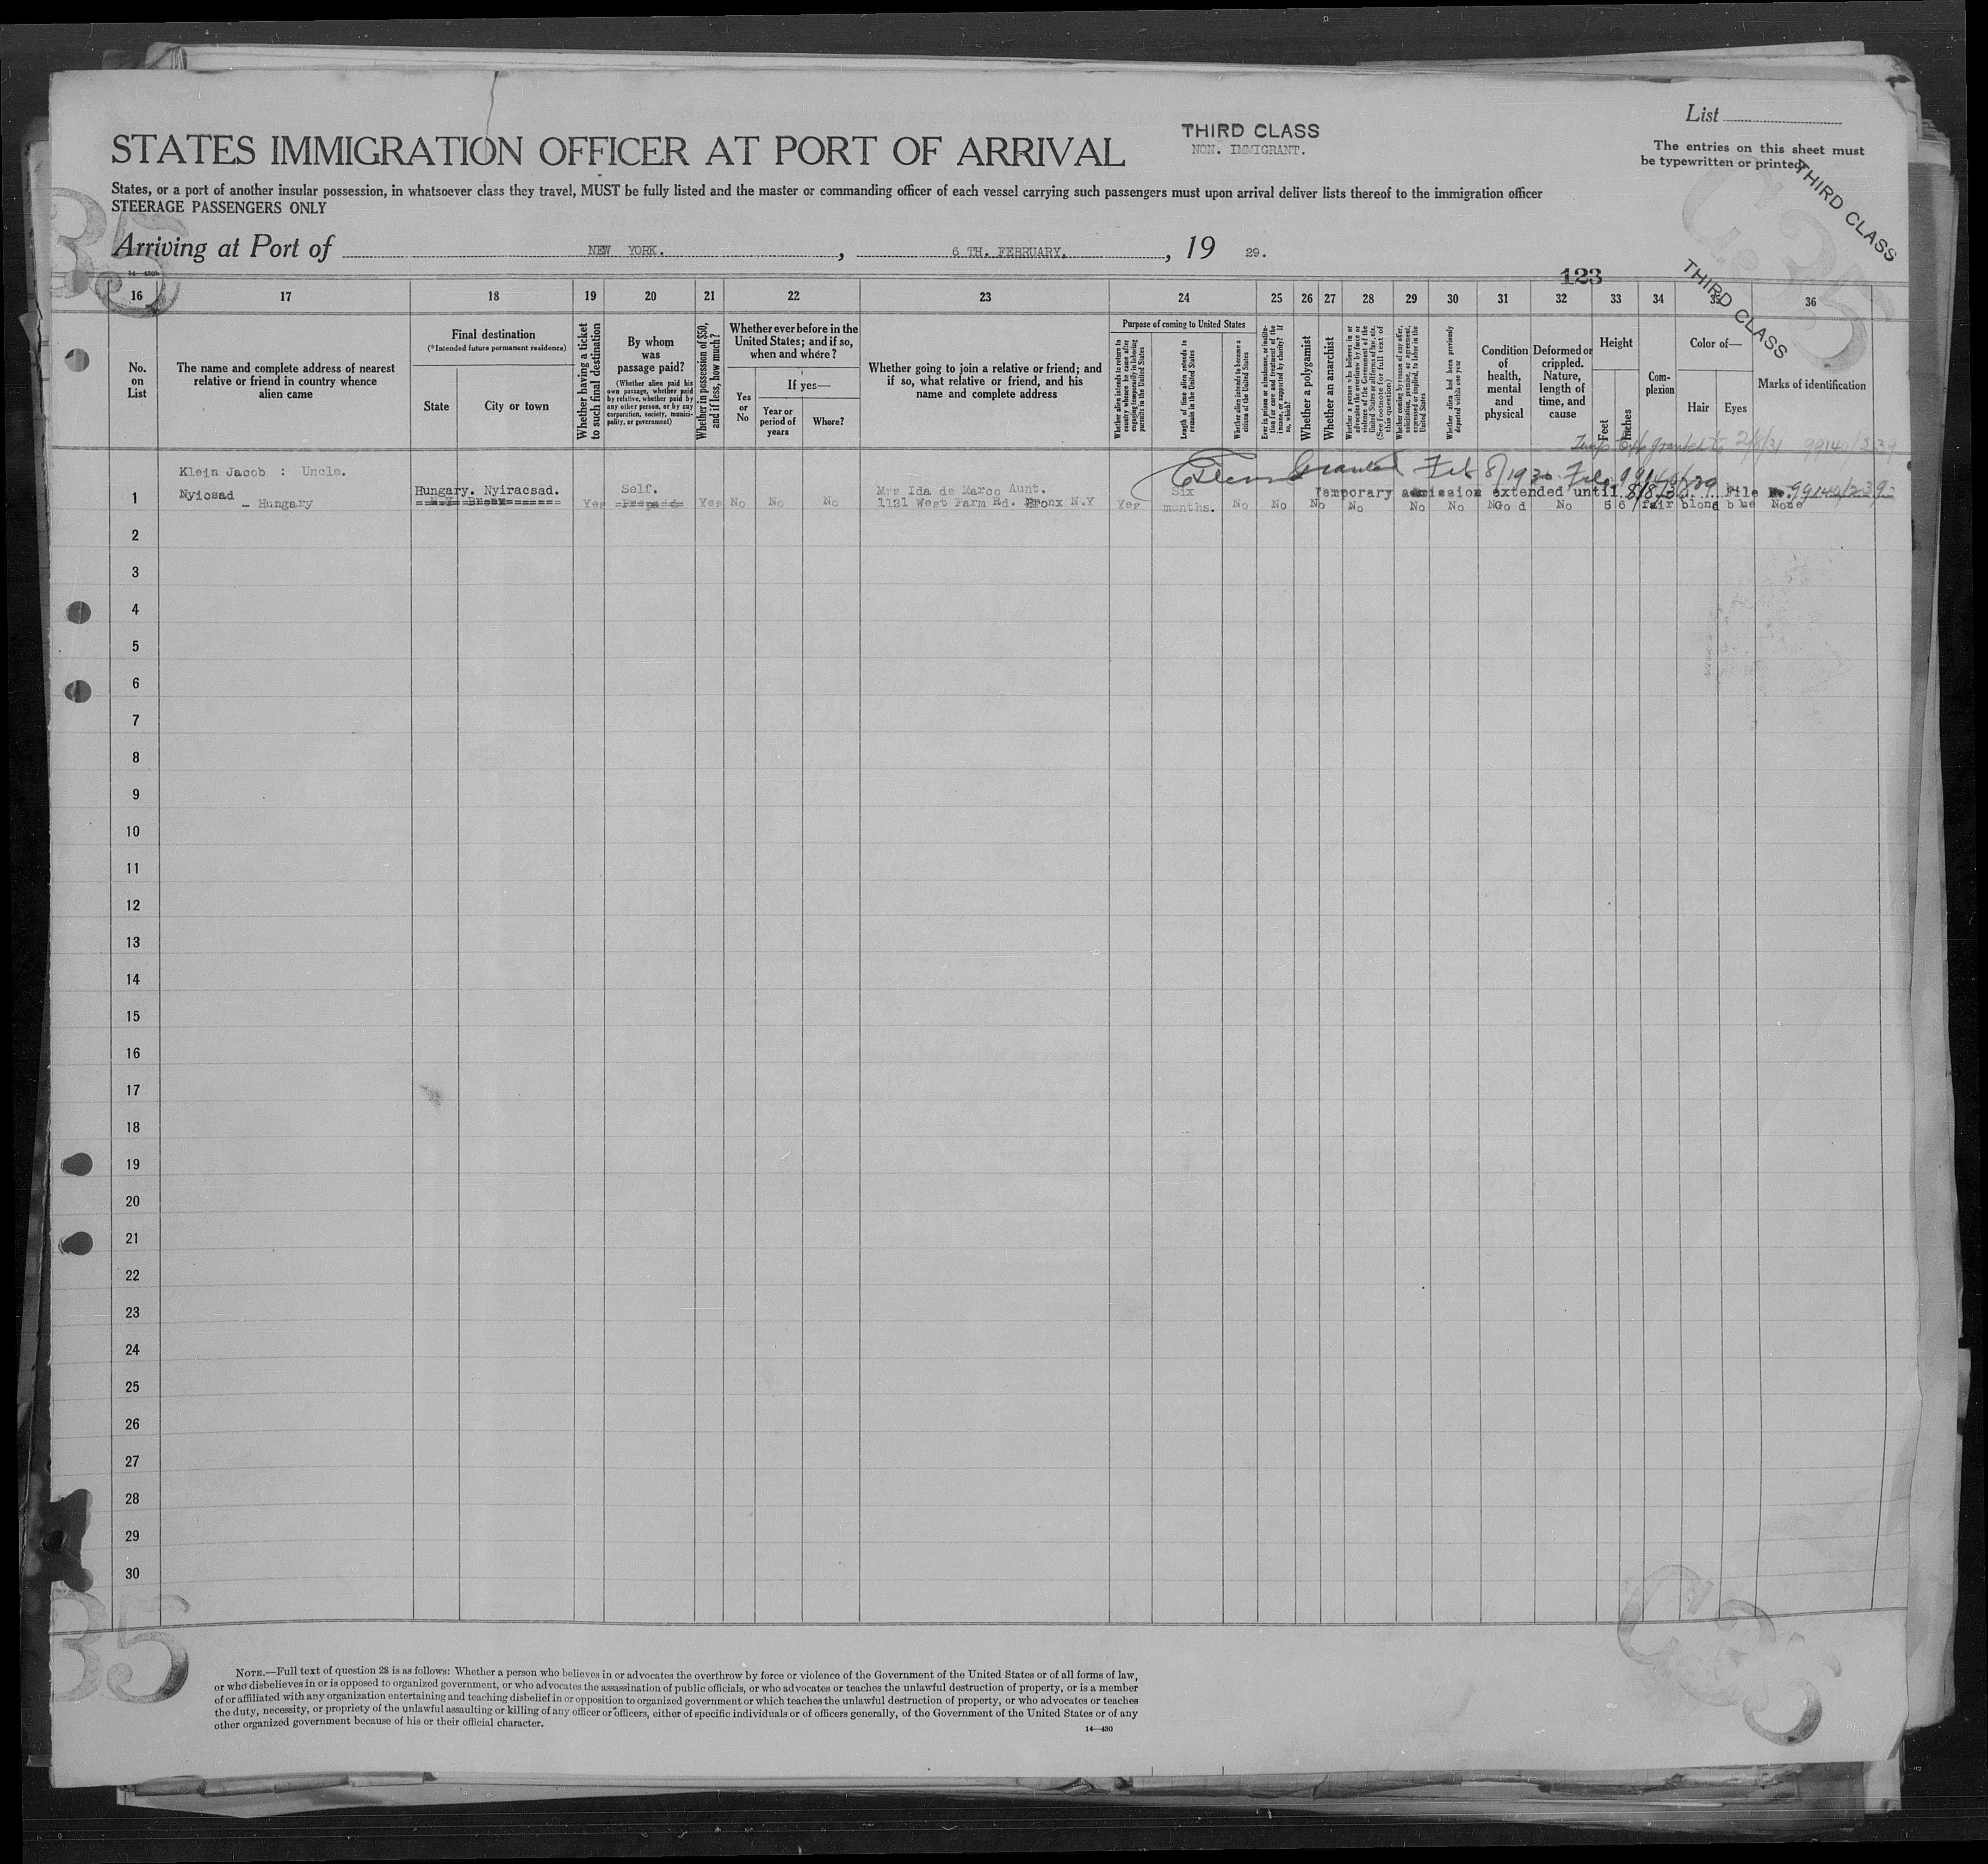 List
THIRD CLASS
NON. IMMIGRANT.
STATES IMMIGRATION OFFICER AT PORT OF ARRIVAL
The entries on this sheet must
be typewritten or printed
THIRD CLASS
States, or a port of another insular possession, in whatsoever class they travel, MUST be fully listed and the master or commanding officer of each vessel carrying such passengers must upon arrival deliver lists thereof to the immigration officer
STEERAGE PASSENGERS ONLY
35
Arriving at Port of NEW YORK. , 6 TH. FEBRUARY. , 19 29.
14—430b
123
THIRD CLASS
16 17 18 19 20 21 22 23 24 25 26 27 28 29 30 31 32 33 34 35 36
No. on List
The name and complete address of nearest relative or friend in country whence alien came
Final destination
(*Intended future permanent residence)
State
City or town
Whether having a ticket to such final destination
By whom was passage paid?
(Whether alien paid his own passage, whether paid by relative, whether paid by any other person, or by any corporation, society, municipality, or government)
Whether in possession of $50, and if less, how much?
Whether ever before in the United States; and if so, when and where?
Yes or No
If yes—
Year or period of years
Where?
Whether going to join a relative or friend; and if so, what relative or friend, and his name and complete address
Purpose of coming to United States
Whether alien intends to return to country whence he came after engaging temporarily in laboring pursuits in the United States
Length of time alien intends to remain in the United States
Whether alien intends to become a citizen of the United States
Ever in prison or almshouse, or institution for care and treatment of the insane, or supported by charity? If so, which?
Whether a polygamist
Whether an anarchist
Whether a person who believes in or advocates the overthrow by force or violence of the Government of the United States or all forms of law, etc. (See footnote for full text of this question)
Whether coming by reason of any offer, solicitation, promise, or agreement, expressed or implied, to labor in the United States
Whether alien had been previously deported within one year
Condition of health, mental and physical
Deformed or crippled. Nature, length of time, and cause
Height
Feet
Inches
Complexion
Color of—
Hair
Eyes
Marks of identification
granted to 2/8/31 99140/239
Granted Feb 8/1930
Klein Jacob : Uncle.
Nyiosad
- Hungary
Hungary. Nyiracsad.
N.Y Bronx
Yes
Self.
Prepaid
Yes No No No
Mrs Ida de Marco Aunt.
1121 West Farm Rd. Bronx N.Y
Yes
Six
months.
Temporary admission extended until 8/8/30. File No. 99140/239
No No No No No No Good No 5 6 fair blond blue None
1
2
3
4
5
6
7
8
9
10
11
12
13
14
15
16
17
18
19
20
21
22
23
24
25
26
27
28
29
30
35
NOTE.—Full text of question 28 is as follows: Whether a person who believes in or advocates the overthrow by force or violence of the Government of the United States or of all forms of law,
or who disbelieves in or is opposed to organized government, or who advocates the assassination of public officials, or who advocates or teaches the unlawful destruction of property, or is a member
of or affiliated with any organization entertaining and teaching disbelief in or opposition to organized government or which teaches the unlawful destruction of property, or who advocates or teaches
the duty, necessity, or propriety of the unlawful assaulting or killing of any officer or officers, either of specific individuals or of officers generally, of the Government of the United States or of any
other organized government because of his or their official character.
14—430